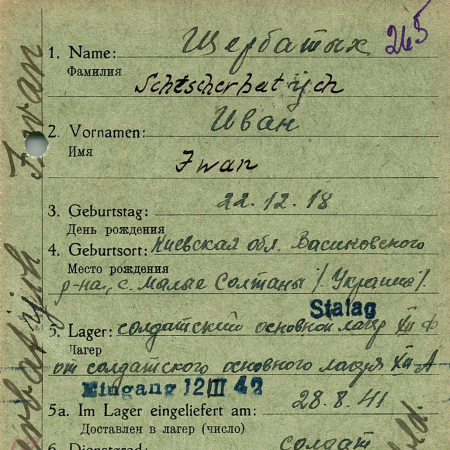 265
1. Name: Щербатых
Фамилия
Schtscherbatijch
2. Vornamen: Иван
Имя
Iwan
3. Geburtstag: 22.12.18
День рождения
4. Geburtsort: Киевская обл. Васиковского
Место рождения
р-на, с. Малые Солтаны /Украина/.
Stalag
5. Lager: солдатский основной лагерь XII Ф
Лагер
от солдатского основного лагеря XII-А
Eingang 12 III 42
5a. Im Lager eingeliefert am: 28.8.41
Доставлен в лагер (число)
6. Dienstgrad: солдат
Iwan